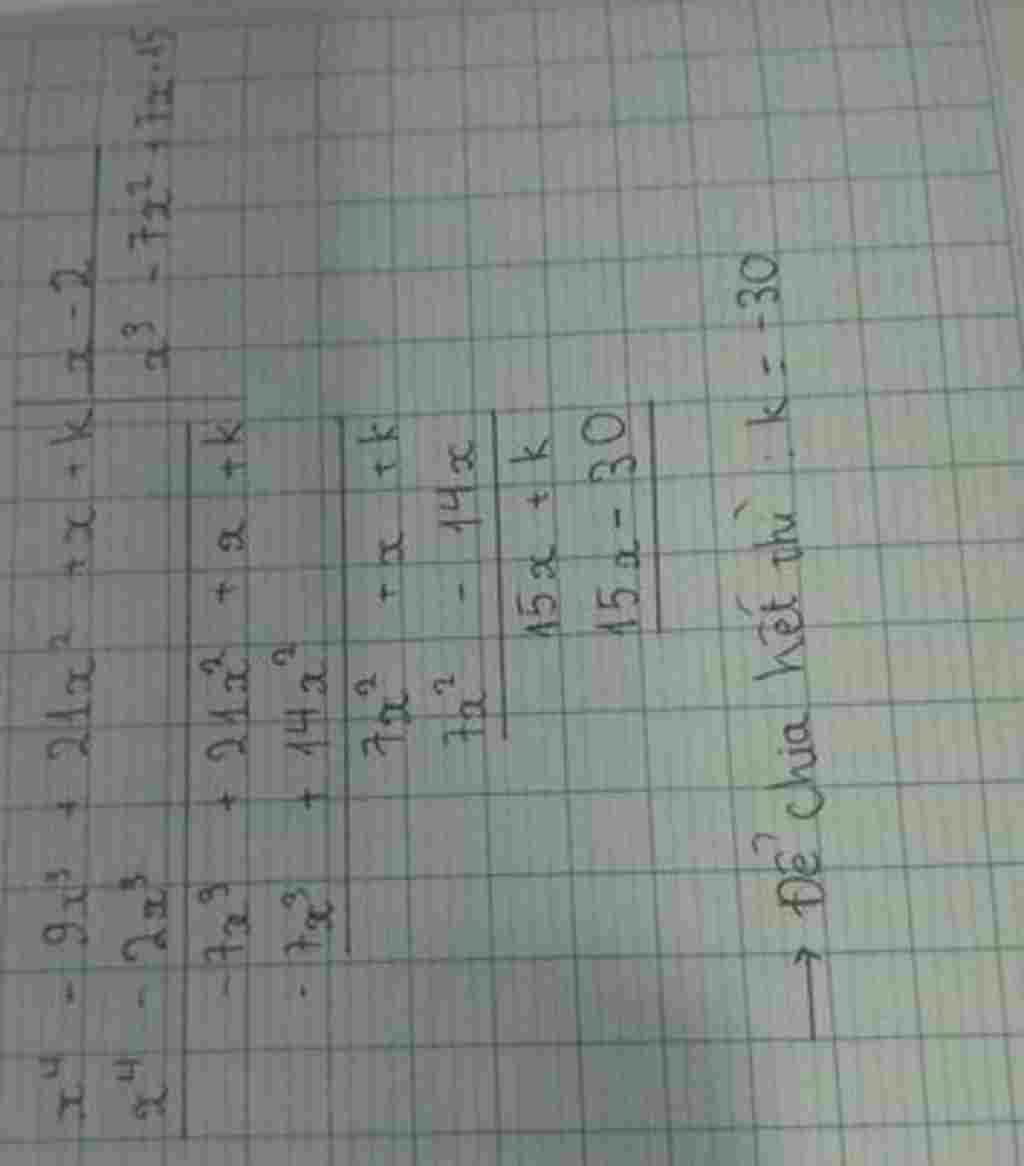 x⁴ - 9x³ + 21x² + x + k | x - 2
x⁴ - 2x³ | x³ - 7x² + 7x + 15
- 7x³ + 21x² + x + k
- 7x³ + 14x²
7x² + x + k
7x² - 14x
15x + k
15x - 30
→ Để chia hết thì : k = -30